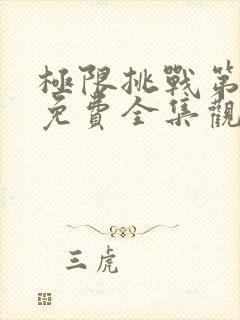 極限挑戰第
免費全集觀
三虎